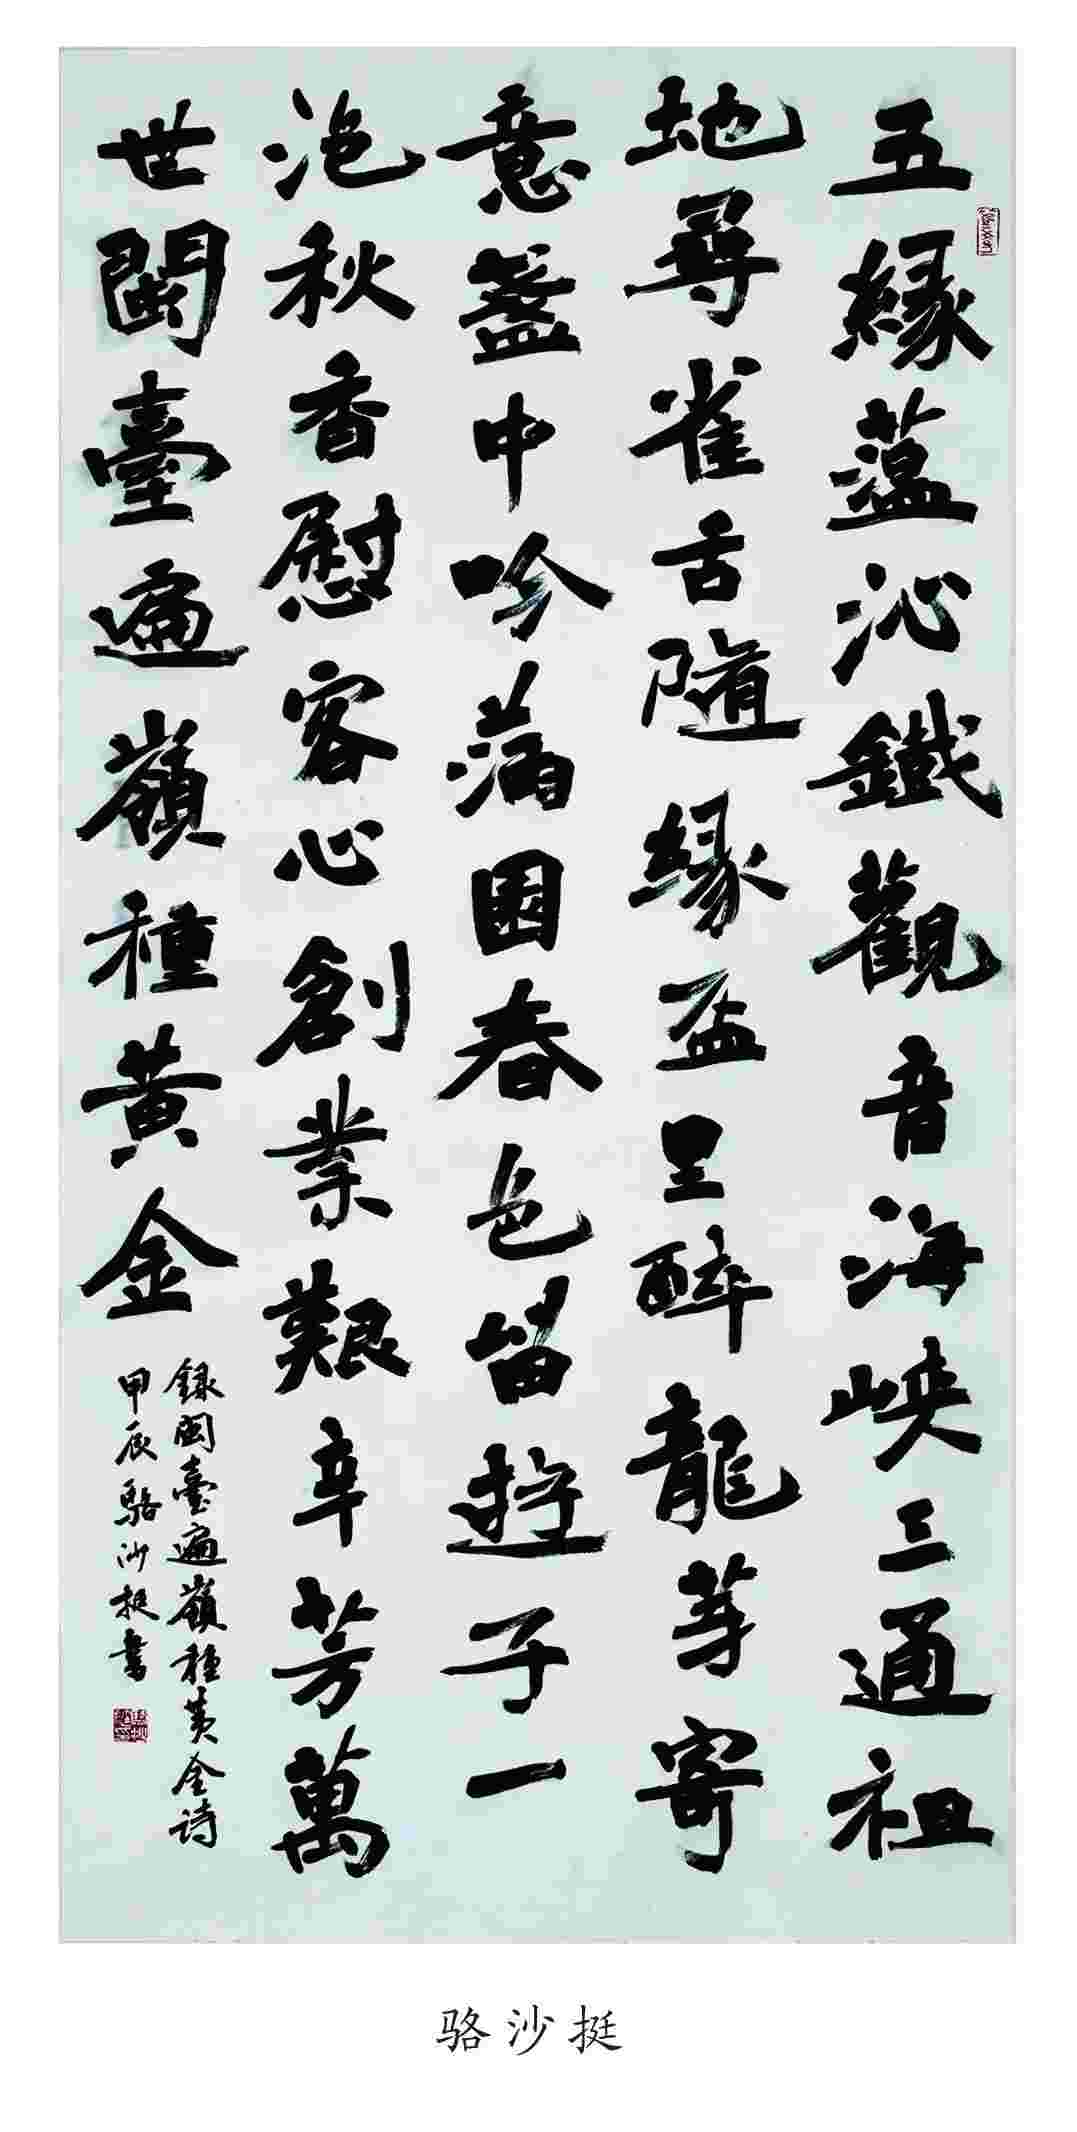 五緣蕰沁鐵觀音海峽三通祖
地尋雀舌隨緣盃呈醉龍芽寄
意盞中吟滿園春色留遊子一
泡秋香慰客心創業艱辛芳萬
世閩臺遍嶺種黃金
錄閩臺遍嶺種黃金诗
甲辰駱沙挺書
骆沙挺